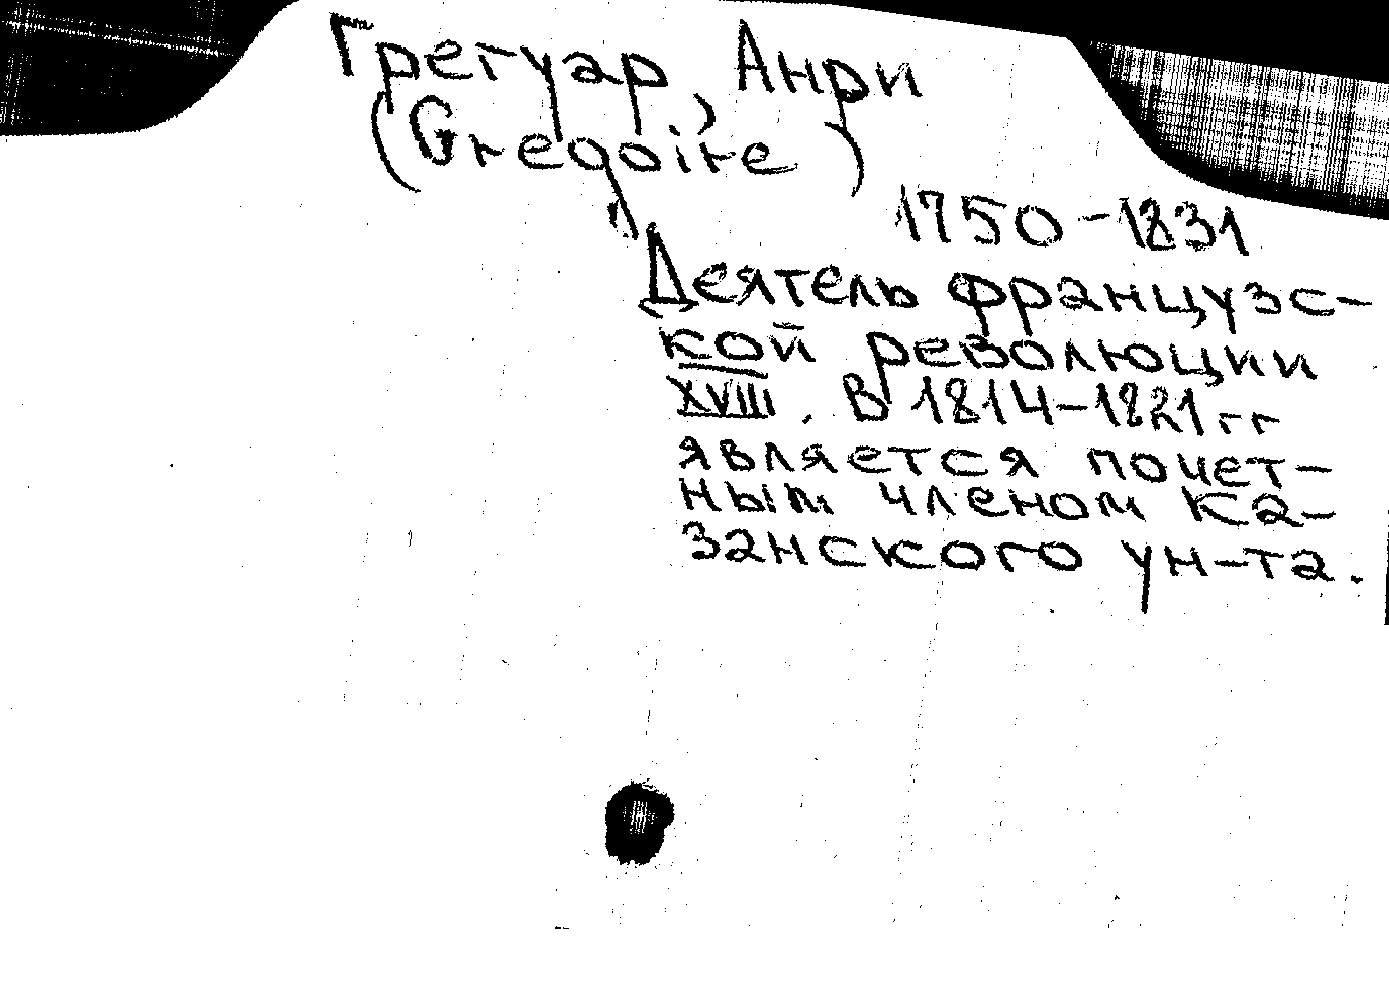 Грегуар, Анри
(Gregoire)
1750-1831
Деятель француз-
кой революции
XVIII. В 1814-1821 гг
является почет-
ным членом Ка-
занского ун-та.